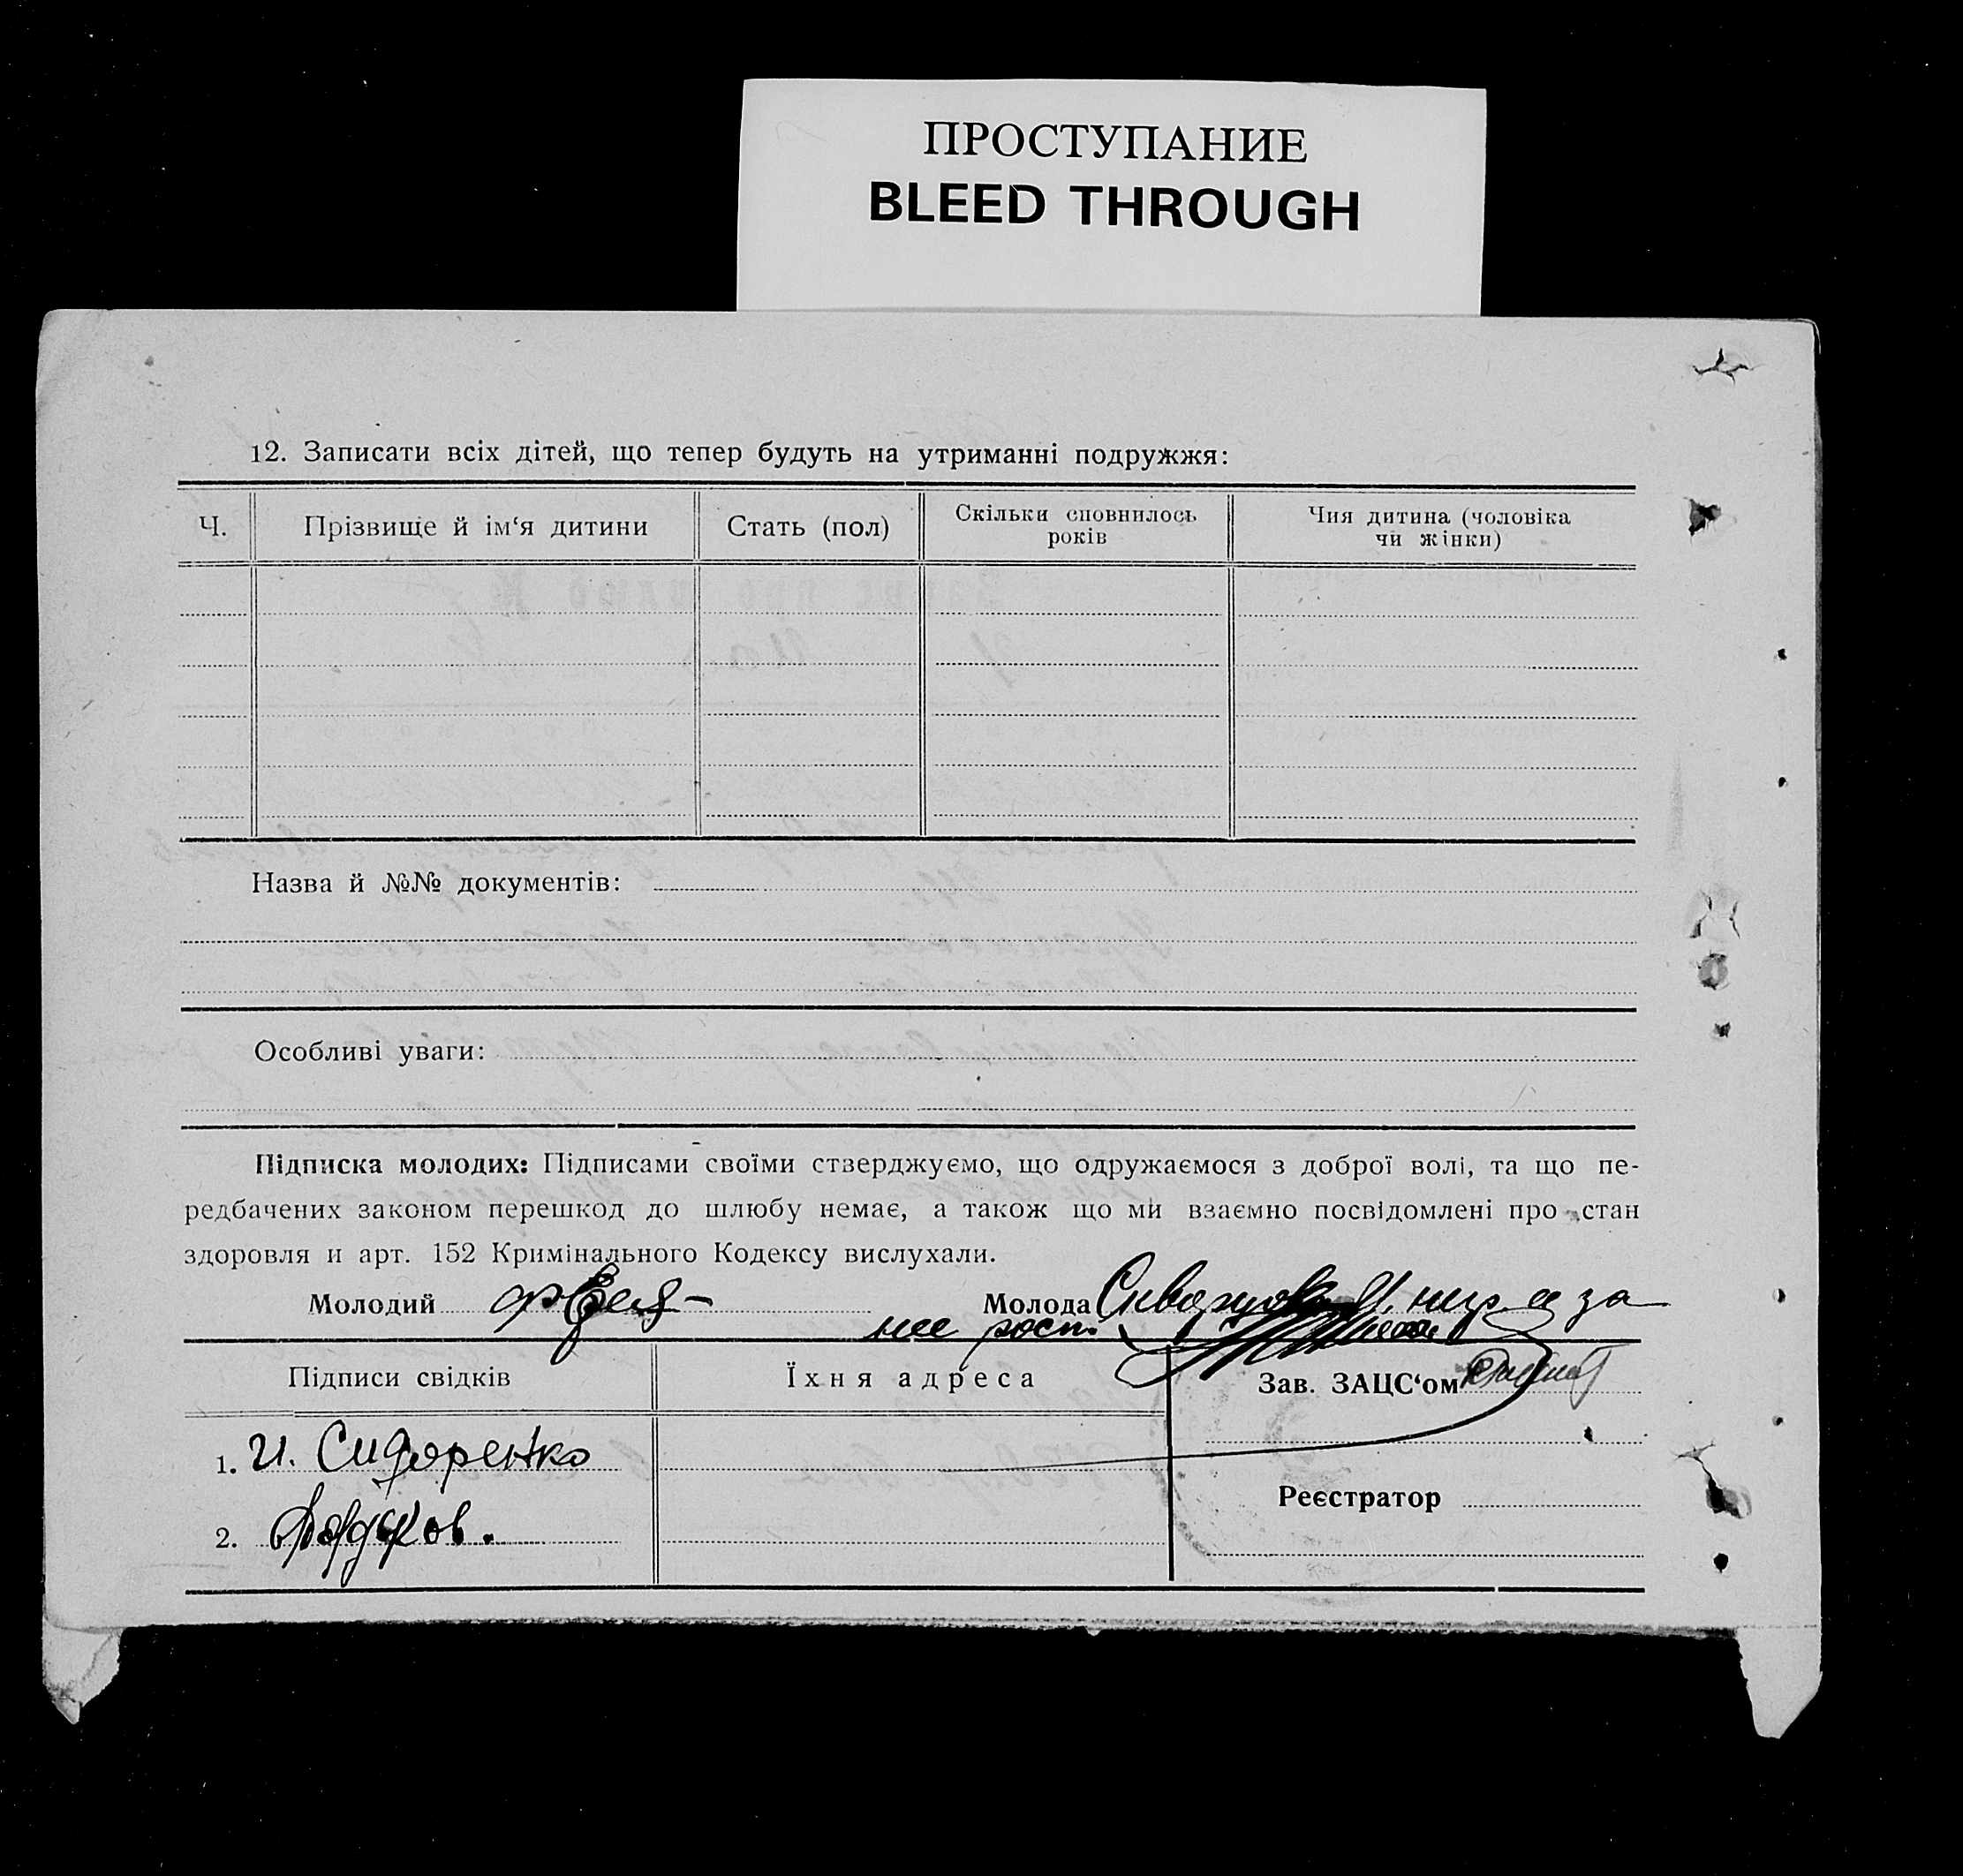 ПРОСТУПАНИЕ
BLEED THROUGH
12. Записати всіх дітей, що тепер будуть на утриманні подружжя:
Ч. Прізвище й ім‘я дитини Стать (пол) Скільки сповнилось років Чия дитина (чоловіка чи жінки)
Назва й №№ документів:
Особливі уваги:
Підписка молодих: Підписами своїми стверджуємо, що одружаємося з доброї волі, та що пе-
редбачених законом перешкод до шлюбу немає, а також що ми взаємно посвідомлені про стан
здоровля и арт. 152 Кримінального Кодексу вислухали.
Молодий Молода за
нее росп.
Підписи свідків Їхня адреса Зав. ЗАЦС‘ом
1. И. Сидоренко
Реєстратор
2.